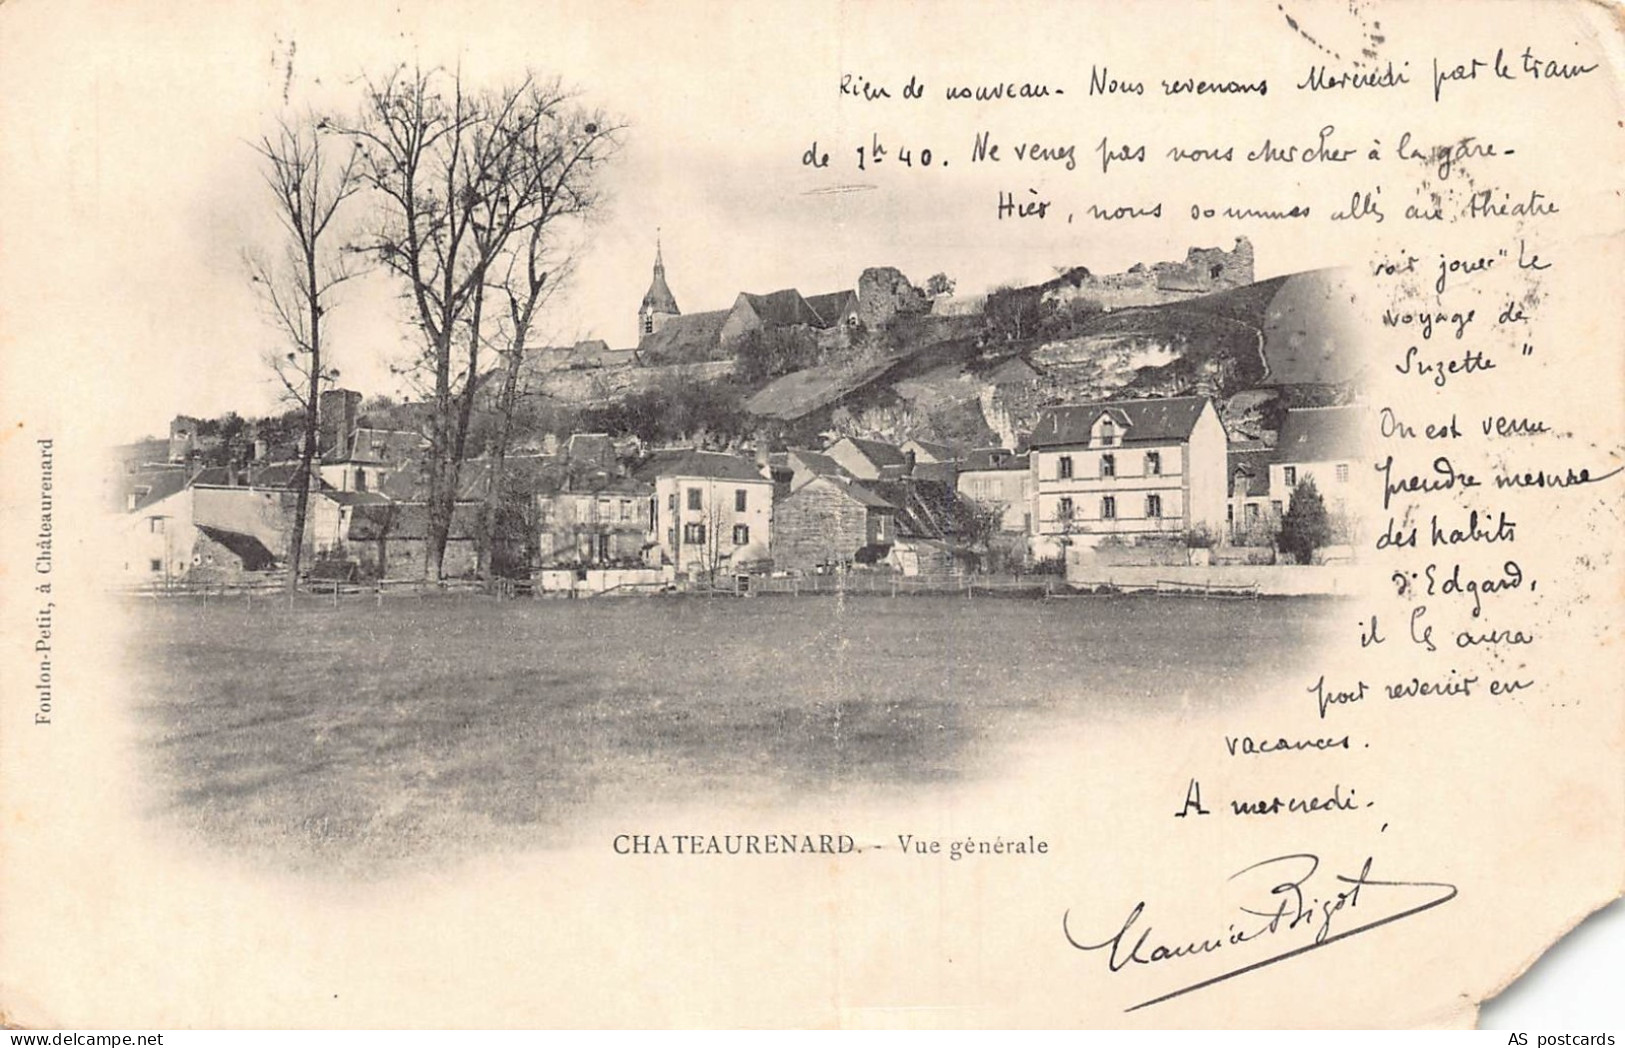 Rien de nouveau. Nous revenons Mercredi par le train
de 1h 40. Ne venez pas nous chercher à la gare.
Hier, nous sommes allés au théatre
voir jouer "Le
voyage de
Suzette"
On est venu
prendre mesure
des habits
d'Edgard,
il les aura
pour revenir en
vacances.
A mercredi.
Maurice Bigot
CHATEAURENARD. - Vue générale
Foulon-Petit, à Châteaurenard
AS postcards